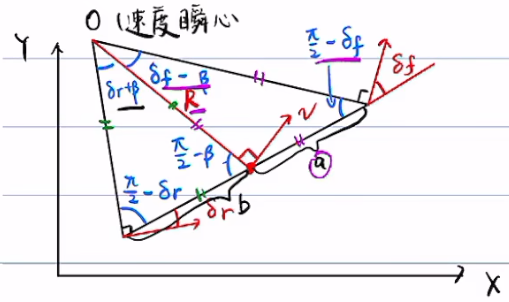 O（速度瞬心）
Y
π/2 - δf
δf
δf - β
δr+β
R
v
π/2 - β
a
π/2 - δr
δr
b
X